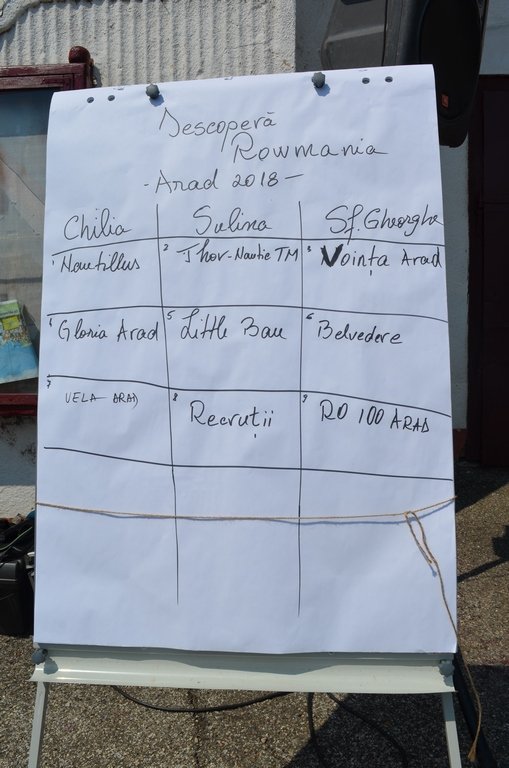 Descoperă
Rowmania
- Arad 2018 -
Chilia Sulina Sf. Gheorghe
1 Nautillus 2 Thor-Nautic TM 3 Voința Arad
4 Gloria Arad 5 Little Bau 6 Belvedere
7 VELA ARAD 8 Recruții 9 RO 100 ARAD